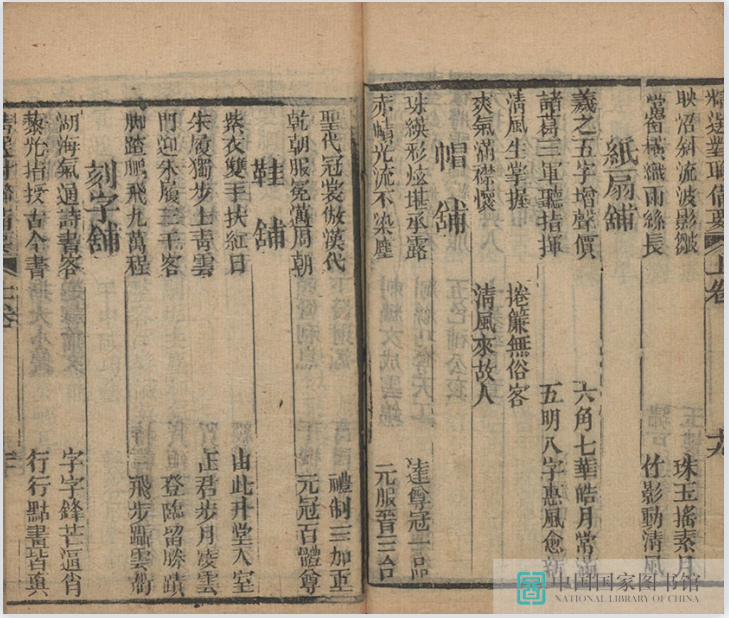 精選對聯備要 上卷
映沼斜流波影皺 珠玉搖素月
當窗橫織雨絲長 竹影動清風
紙扇舖
羲之五字增聲價 六角七華皓月常滿
諸葛三軍聽指揮 五明八字惠風愈新
清風生掌握 捲簾無俗客
爽氣滿襟懷 清風來故人
帽舖
珠緓形炫堪承露 達尊冠一品
赤幘光流不染塵 元服晉三台
聖代冠裳倣漢代 禮制三加重
乾朝服冕邁周朝 元冠百體尊
鞋舖
紫衣雙手扶紅日 由此升堂入室
朱履獨步上青雲 正君步月凌雲
門迎朱履三千客 登臨留勝蹟
脚踏鵬飛九萬程 飛步躡雲衢
刻字舖
湖海氣通詩書客 字字鋒芒逼肖
藜光指授古今書 行行點畫皆真
中国国家图书馆
NATIONAL LIBRARY OF CHINA